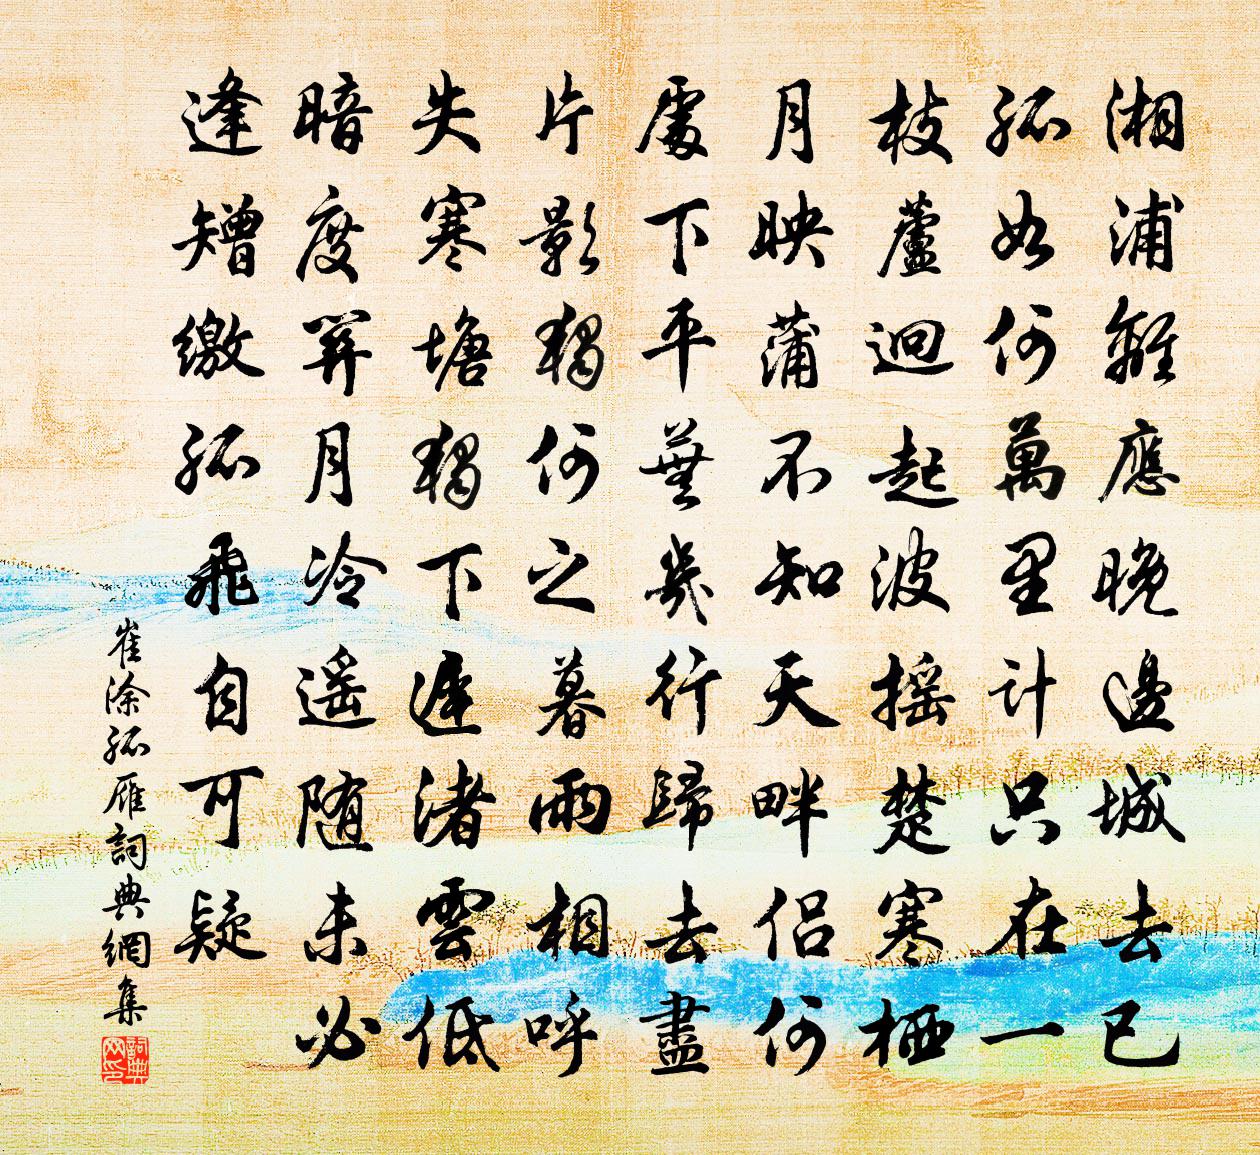 湘浦離應晚邊城去已
孤如何萬里計只在一
枝蘆迥起波搖楚寒栖
月映蒲不知天畔侶何
處下平蕪幾行歸去盡
片影獨何之暮雨相呼
失寒塘獨下遲渚雲低
暗度關月冷遙隨未必
逢矰繳孤飛自可疑
崔涂孤雁詞典網集
詞典网印